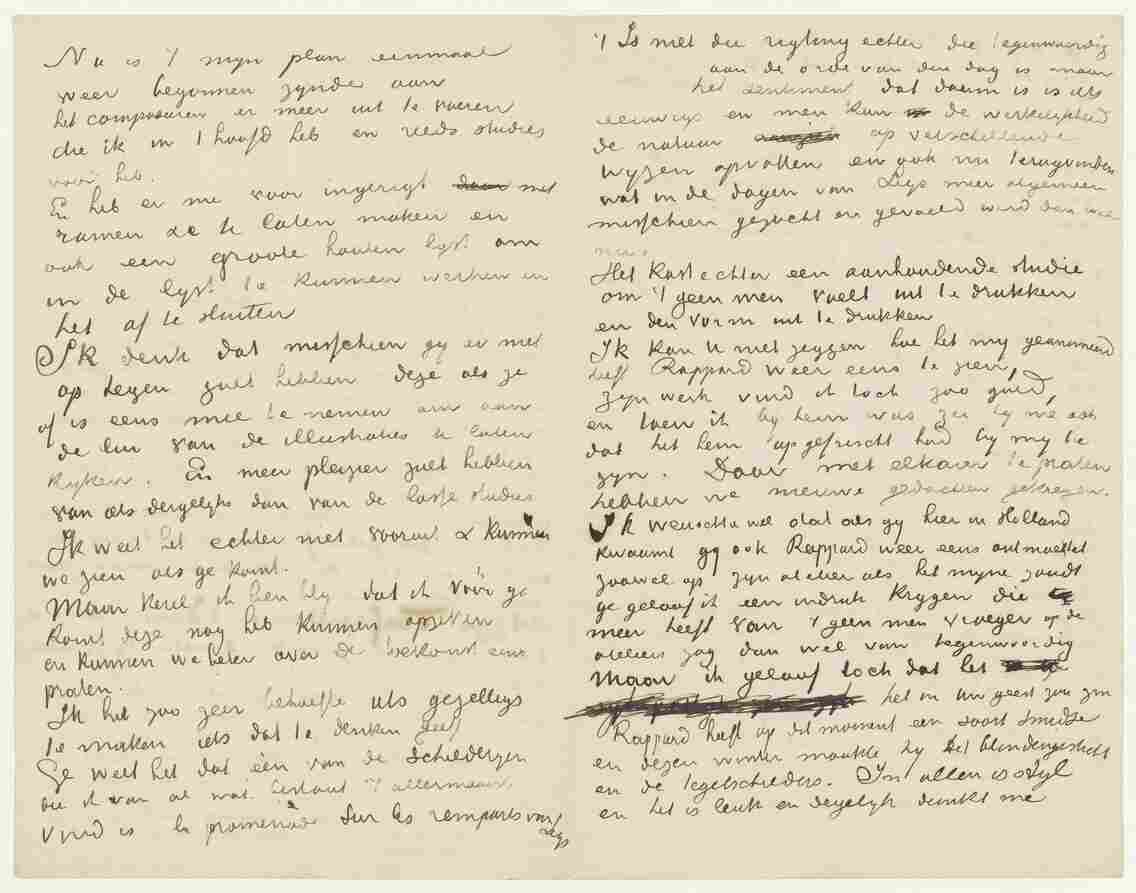 Nu is 't mijn plan eenmaal
weer begonnen zijnde aan
het componeren er meer uit te voeren
die ik in 't hoofd heb en reeds studies
voor heb.
En heb er me voor ingerigt met
ramen te laten maken en
ook een groote houten lijst om
in de lijst te kunnen werken en
het af te sluiten
Ik denk dat misschien gij er niet
op tegen zult hebben deze als ze
af is eens mee te nemen om aan
de lui van de illustraties te laten
kijken. En meer pleizier zult hebben
van iets dergelijks dan van de losse studies
Ik weet het echter niet vooruit & kunnen
we zien als ge komt.
Maar kerel ik ben blij dat ik vóór ge
komt deze nog heb kunnen opzetten
en kunnen we beter over de toekomst eens
praten.
Ik heb zoo zeer behoefte iets gezelligs
te maken iets dat te denken geeft
Ge weet het dat één van de schilderijen
die ik van al wat bestaat 't allermooist
vind is la promenade sur les remparts van Leys
't Is niet die rigting echter die tegenwoordig
aan de orde van den dag is maar
het sentiment dat daarin is is iets
eeuwigs en men kan de werkelijkheid
de natuur op verschillende
wijzen opvatten en ook nu terugvinden
wat in de dagen van Leys meer algemeen
misschien gezocht en gevoeld werd dan wel
nu.
Het kost echter een aanhoudende studie
om 't geen men voelt uit te drukken
en den vorm uit te drukken
Ik kan U niet zeggen hoe het mij geanimeerd
heeft Rappard weer eens te zien,
zijn werk vind ik toch zoo goed,
en toen ik bij hem was zei hij me ook
dat het hem opgefrischt had bij mij te
zijn. Door met elkaar te praten
hebben we nieuwe gedachten gekregen.
Ik wenschte wel dat als gij hier in Holland
kwaamt gij ook Rappard weer eens ontmoettet
zoowel op zijn atelier als het mijne zoudt
ge geloof ik een indruk krijgen die
meer heeft van 't geen men vroeger op de
ateliers zag dan wel van tegenwoordig
Maar ik geloof toch dat het
het in Uw geest zou zijn
Rappard heeft op dit moment een soort smidse
en dezen winter maakte hij het blindengesticht
en de tegelschilders. In allen is stijl
en het is leuk en degelijk dunkt me